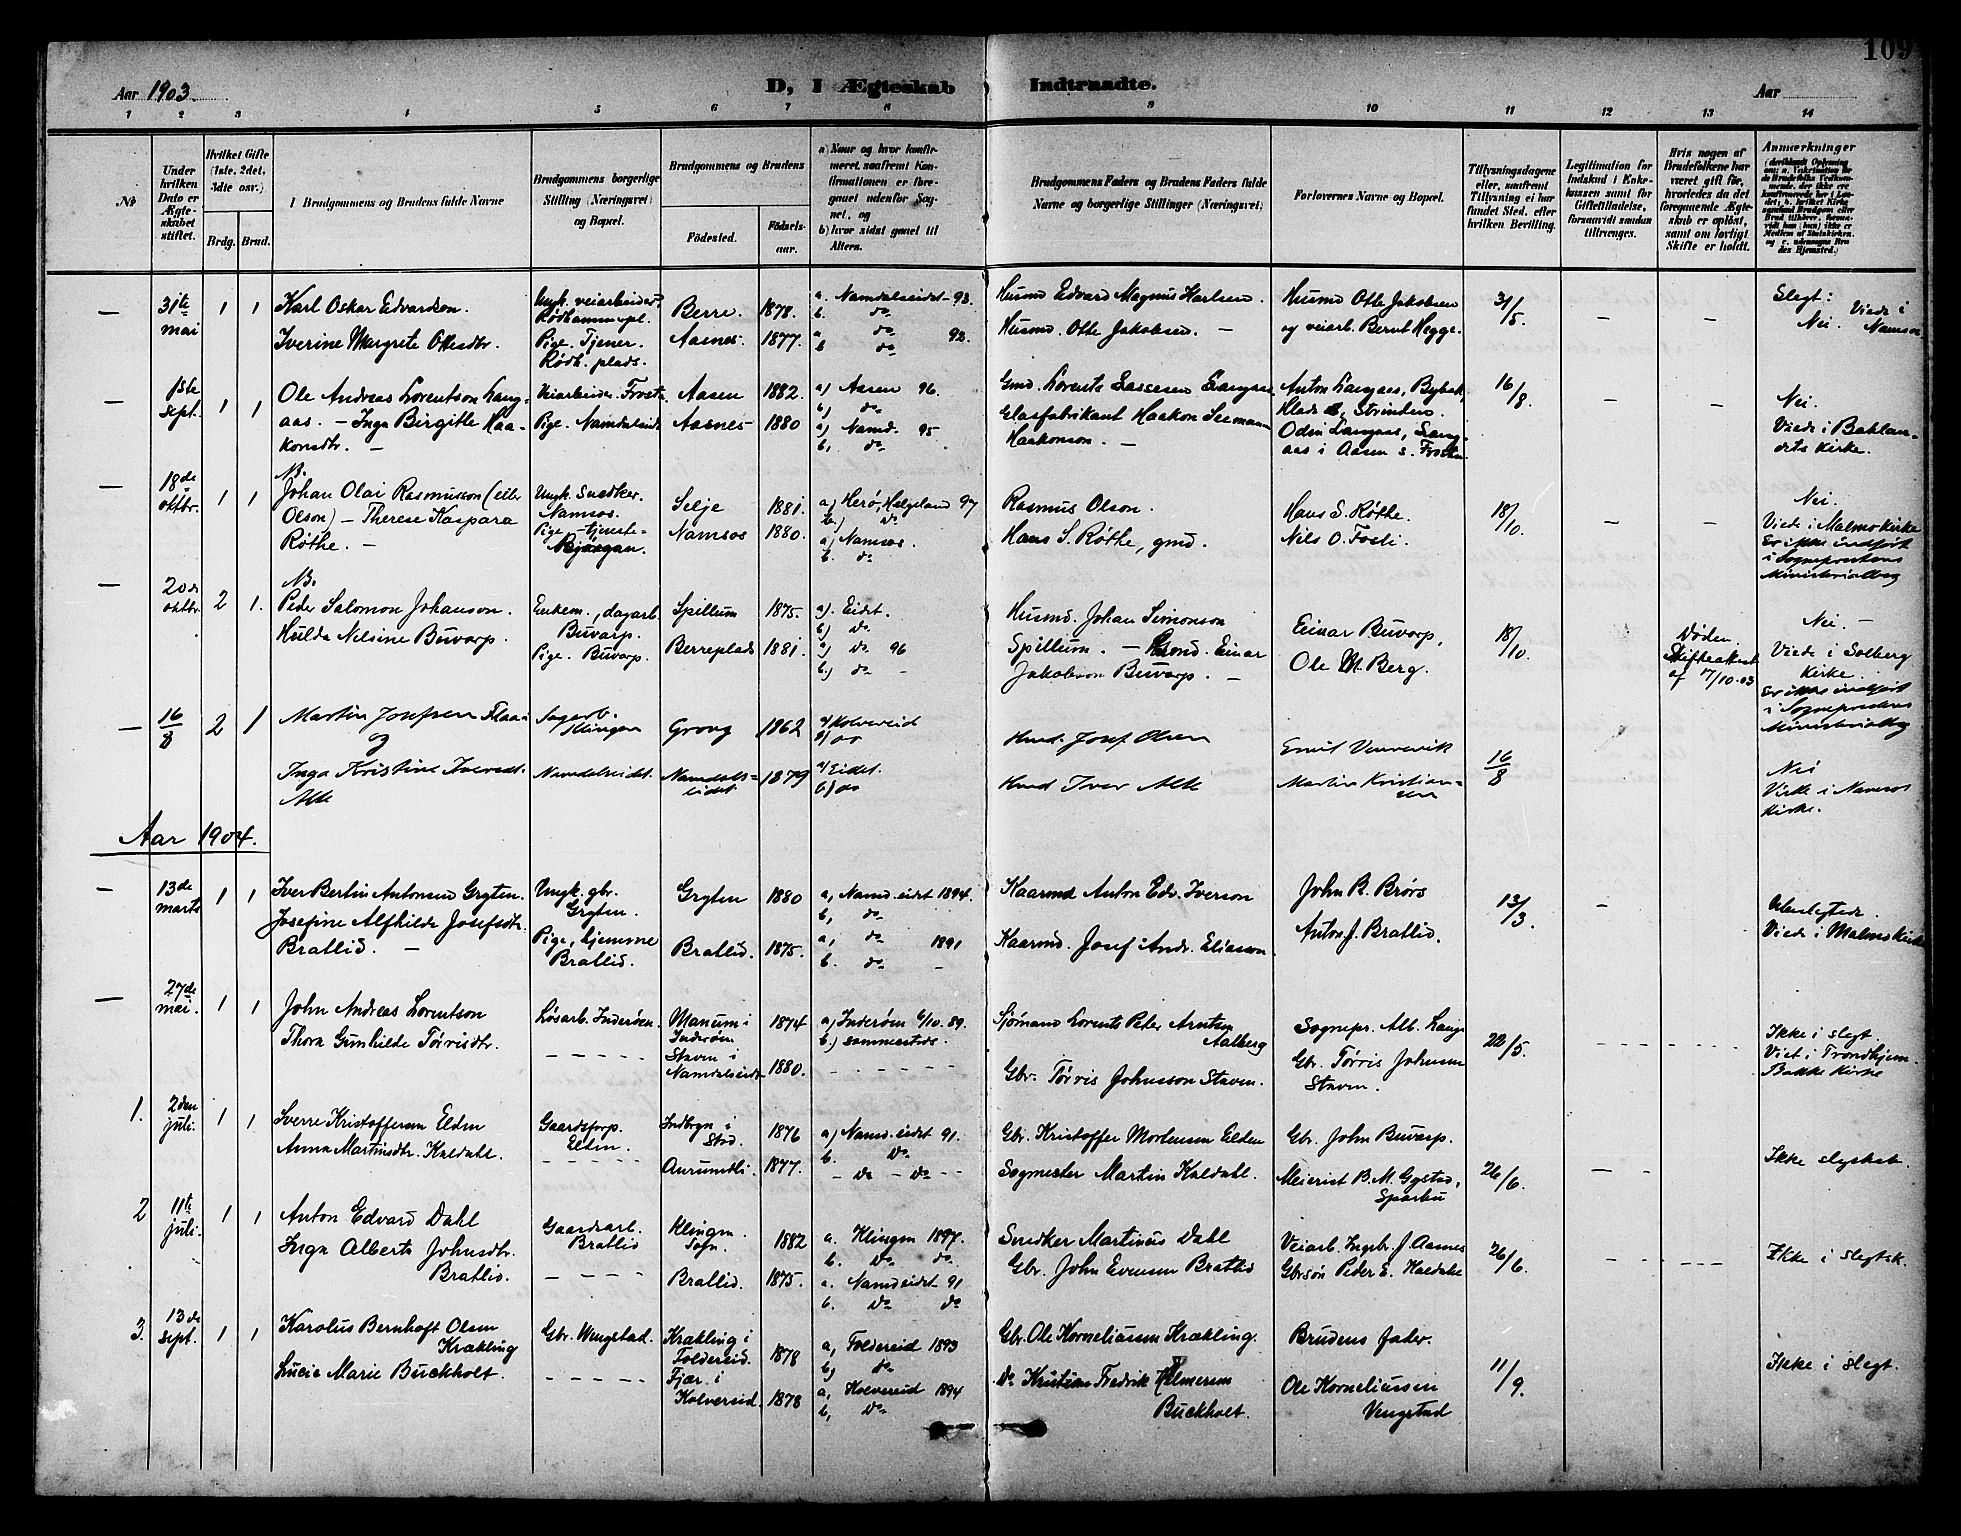 109
Aar 1903.
D, I Ægteskab Indtraadte.
Aar
1 2 3 4 5 6 7 8 9 10 11 12 13 14
№
Under hvilken Dato er Ægteskabet stiftet.
Hvilket Gifte (1ste, 2det, 3die osv.)
Brdg. Brud.
Brudgommens og Brudens fulde Navne
Brudgommens borgerlige Stilling (Næringsvei) og Bopæl.
Brudgommens og Brudens
Födested.
Födselsaar.
a) Naar og hvor konfirmeret, saafremt Konfirmationen er foregaaet udenfor Sognet, og
b) hvor sidst gaaet til Alters.
Brudgommens Faders og Brudens Faders fulde Navne og borgerlige Stillinger (Næringsvei)
Forlovernes Navne og Bopæl.
Tillysningsdagene eller, saafremt Tillysning ei har fundet Sted, efter hvilken Bevilling.
Legitimation for Indskud i Enkekassen samt for Giftetilladelse, forsaavidt saadan tiltrænges.
Hvis nogen af Brudefolkene har været gift før, hvorledes da det foregaaende Ægteskab er opløst, samt om lovligt Skifte er holdt.
Anmærkninger
— 31te mai 1 1
Karl Oskar Edvardsen.
Iverine Margrete Ottesdtr.
Ungk. veiarbeider Rødhammerpl.
Pige. Tjener. Rødh. plads.
Berre. 1878.
Aasnes. 1877.
a. Namdalseidet - 93.
b. do
a, do 92.
b do
Husmd Edvard Magnus Karlsen.
Husmd. Otte Jakobsen. —
Husmd Otte Jakobsen
og veiarb. Bernt Hegge.
31/5.
—
—
Slegt: Nei. Viede i Namsos
— 1ste sept. 1 1
Ole Andreas Lorentson Langaas. — Inga Birgitte Haakonsdtr. —
Veiarbeider. Frosta
Pige. Namdalseid
Aasen 1882.
Aasnes 1880
a) Aasen 96.
b) do
a) Namd. 95
b, do
Gmd. Lorents Lassesen Langaas
Glasfabrikant Haakon Seemann
Haakonson. —
Anton Langaas,
Strinden.
Odin Langaas, Langaas i Aasen s. Frosten.
16/8.
—
—
Nei.
Viede i Baklandets Kirke.
— 18de oktbr. 1 1
N.
Johan Olai Rasmusson (eller
Olson) — Therese Kaspara
Røthe. —
Ungk. Snedker. Namsos.
Pige - tjeneste- Bjørgan.
Selje 1881.
Namsos 1880.
a) Herø, Helgeland 97
b.) do
a) Namsos.
b. do
Rasmus Olson.
Hans S. Røthe, gmd.
Hans S. Røthe.
Nils O. Fosli.
18/10.
—
—
Nei.
Viede i Malmo Kirke
Er ikke indført
i Sogneprestens
Ministerialbog
— 20de oktbr. 2 1.
N.
Peder Salomon Johanson.
Hulda Nelsine Buvarp.
Enkem., dagarb. Buvarp.
Pige. Buvarp.
Spillum 1875.
Berreplads 1881.
a). Eidet.
b) do
a) do 96
b.) do —
Husmd. Johan Simonson
Spillum. — Gmd. Einar
Jakobson Buvarp. —
Einar Buvarp,
Ole M. Berg.
18/10.
Døden.
Skifteattest
af 17/10-03
Nei. —
Viede i Solberg
Kirke.
Er ikke indført
i Sogneprestens
Ministerialbog
— 16/8 2 1
Martin Josefsen Flaa
og
Inga Kristine Iversdt.
Alte
Sagarb. Klingen
Namdalseidet.
Grong 1862
Namdalseidet 1879
a) Kolvereid
b) do
a) Eidet.
b) do
Hmd. Josef Olsen
Hmd Iver Alte
Emil Vennevik
Martin Kristiansen
16/8
Nei
Viede i Namsos
Kirke.
Aar 1904.
— 13de marts 1 1
Iver Bertin Antonsen Gryten.
Josefine Alfhilde Josefsdtr.
Bratlid. —
Ungk. gbr. Gryten.
Pige, hjemme Bratlid.
Gryten 1880
Bratlid. 1875.
a, Namd. eidet 1894.
b, do
a, do 1891
b. do —
Kaarmd Anton Edv. Iverson
Kaarmd. Josef Andr. Eliason.
John B. Brørs
Anton J. Bratlid.
13/3.
—
Ubeslegtede.
Viede i Malmo Kirke
— 27de mai. 1 1
John Andreas Lorentson
Thora Gunhilde Tørrisdtr.
Løsarb. Inderøen.
Manum i Inderøen 1874
Staven i Namdalseidet 1880.
a) Inderøen 6/10. 89.
b.) sammesteds.
Sjømand Lorents Peter Arntsen
Aalberg
Gbr. Tørris Johnsson Staven.
Sognepr. Alb. Lange
Gbr. Tørris Johnsen
Staven.
22/5.
Ikke i slegt.
Viet i Trondhjem.
Bakke Kirke
1. 2den juli. 1 1
Sverre Kristoffersen Elden
Anna Martinsdtr. Kaldahl.
Gaardsforp. Elden.
Indbryn i Stod. 1876
Aurumsli. 1877.
a) Namd. eidet 91.
b. do
- do - do -
Gbr. Kristoffer Mortensen Elden
Sogmester Martin Kaldahl.
Gbr. John Buvarp.
Meierist B. M. Gystad,
Sparbu
26/6.
—
Ikke slegskab.
2 11te juli. 1 1
Anton Edvard Dahl
Inga Alberta Johnsdtr.
Bratlid.
Gaardsarb. Bratlid
Klingen Sogn. 1882
Bratlid. 1875.
a. Klingen 1897.
b. do do
a. Namdseidet 91
b. do do
Snedker Martinus Dahl
Gbr. John Evensen Bratlid
Veiarb. Ingebr. J. Aasnes
Gbrsøn Peder E. Kaldahl
26/6.
—
Ikke i slegtsk.
3. 13de sept. 1 1
Karolus Bernhoft Olsen
Krækling
Lucie Marie Buckholt.
Gbr. Wengstad.
Krækling i Foldereid. 1878
Fjær i Kolvereid. 1878
a, Foldereid 1893
b) do
a, Kolvereid 1894
b, do
Gbr. Ole Korneliussen Krækling.
do Kristian Fredrik Hilmersen
Buckholt.
Brudens fader.
Ole Korneliussen
Vengstad
11/9.
Ikke i slegt.